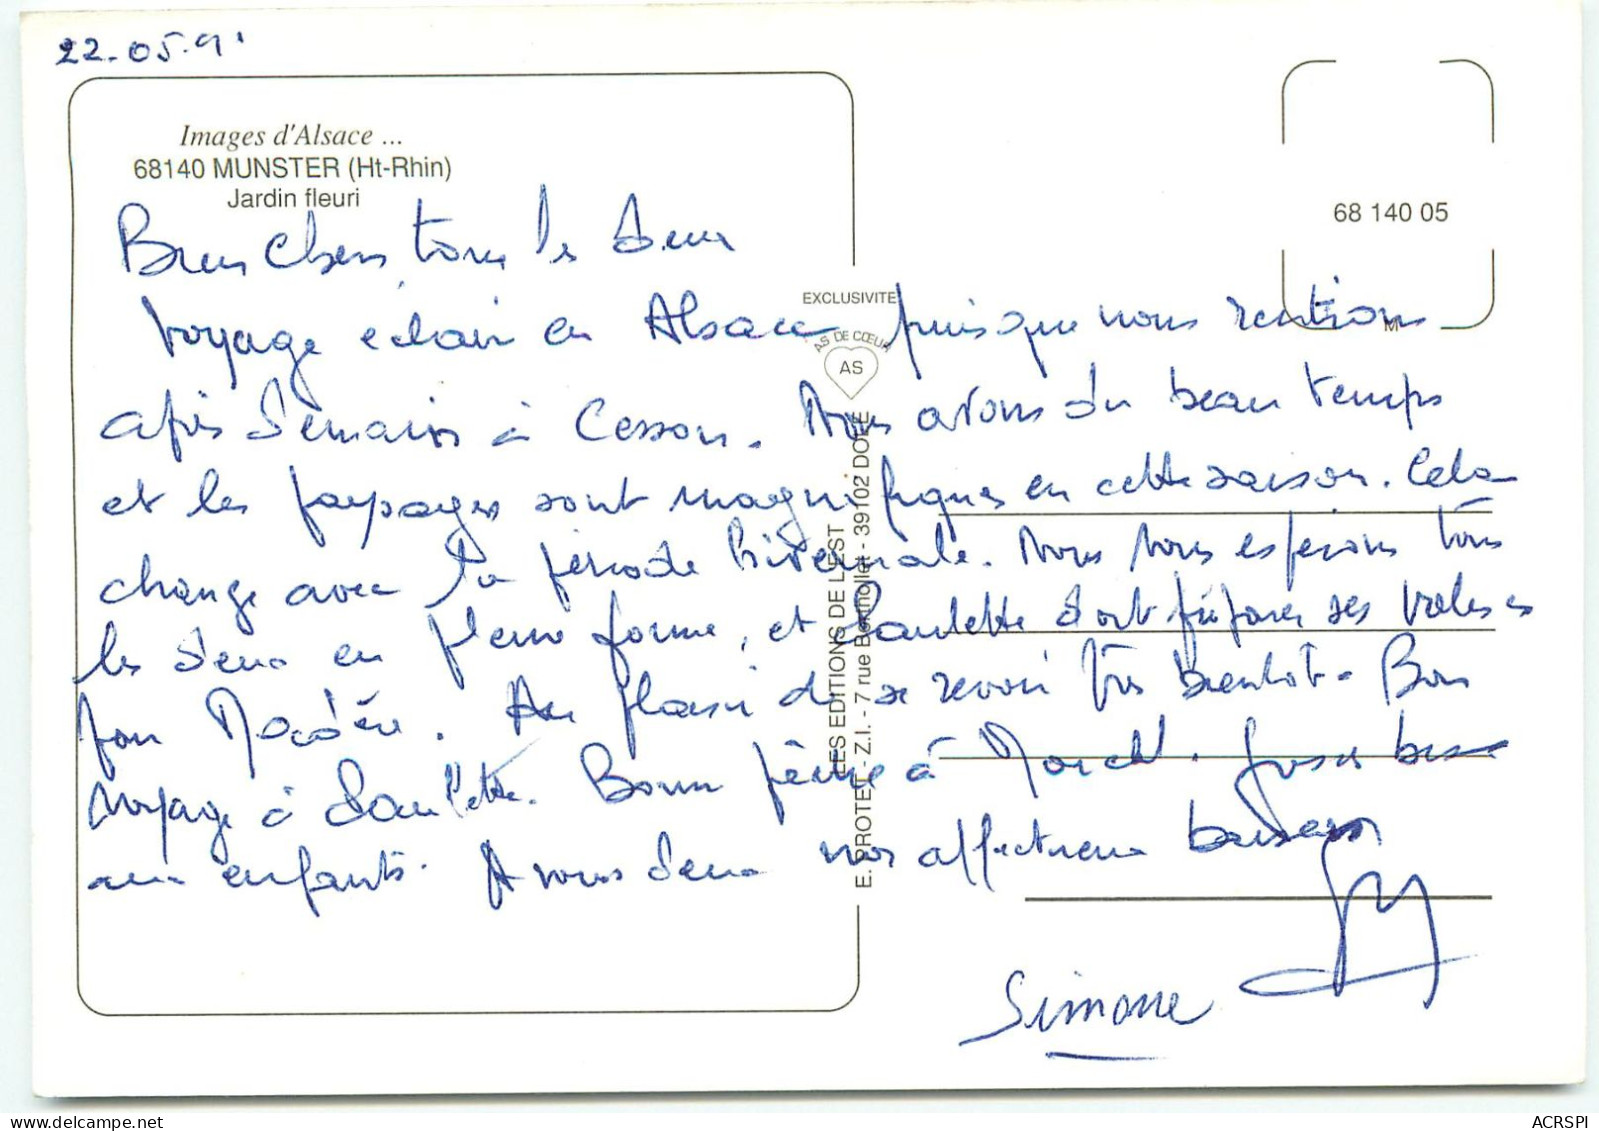 22.05.91
Images d'Alsace ...
68140 MUNSTER (Ht-Rhin)
Jardin fleuri
68 140 05
M
EXCLUSIVITE
AS DE CŒUR
AS
LES EDITIONS DE L'EST
E. PROTET - Z.I. - 7 rue Bernollet - 39102 DOLE
Bien chers tous les deux
Voyage éclair en Alsace puisque nous rentrons
après demain à Cesson. Nous avons du beau temps
et les paysages sont magnifiques en cette saison. Cela
change avec la période hivernale. Nous vous espérons tous
les deux en pleine forme, et Paulette doit préparer ses valises
pour Madère. Au plaisir de se revoir très bientôt. Bon
voyage à Paulette. Bonne pêche à. Grosses bises
aux enfants. A vous deux nos affectueux baisers
Simone